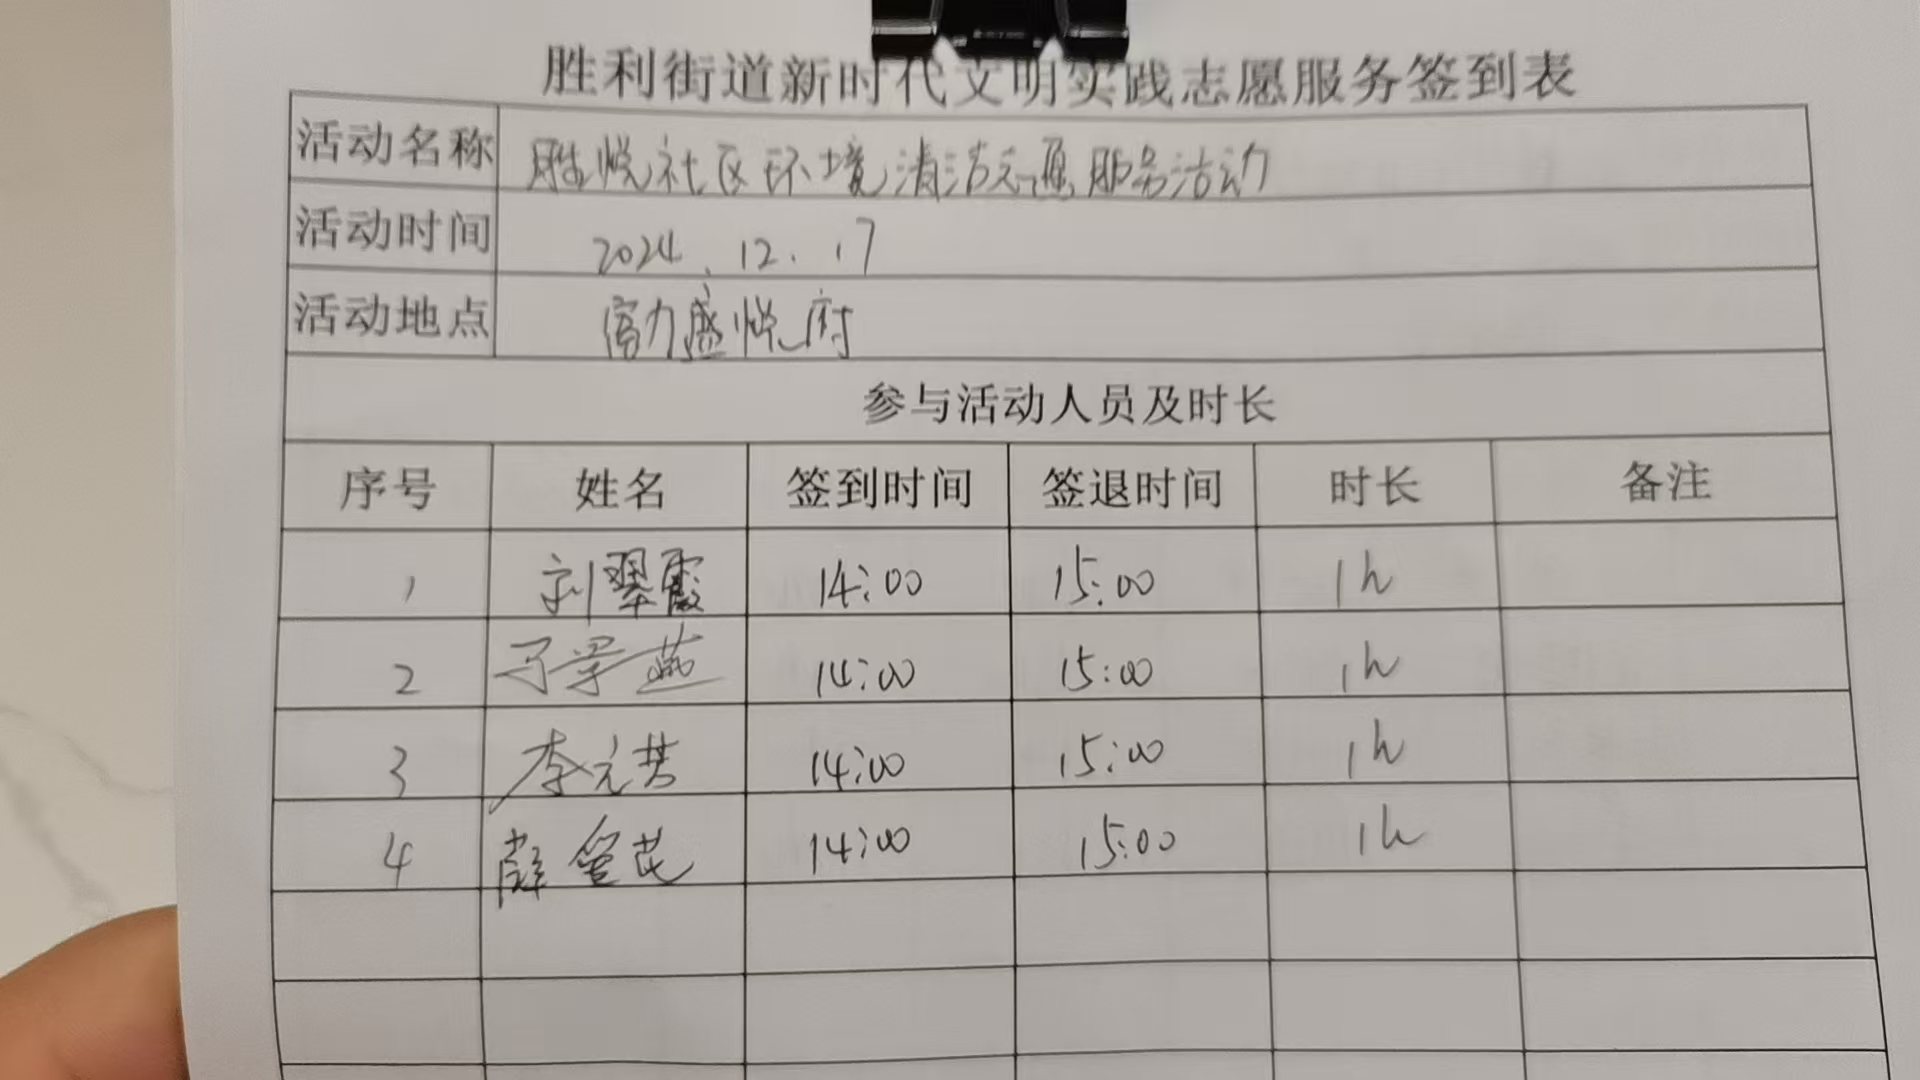 胜利街道新时代文明实践志愿服务签到表
活动名称 胜悦社区环境清洁志愿服务活动
活动时间 2024.12.17
活动地点 富力盛悦府
参与活动人员及时长
序号 姓名 签到时间 签退时间 时长 备注
1 刘翠霞 14:00 15:00 1h
2 14:00 15:00 1h
3 李元芬 14:00 15:00 1h
4 薛 14:00 15:00 1h